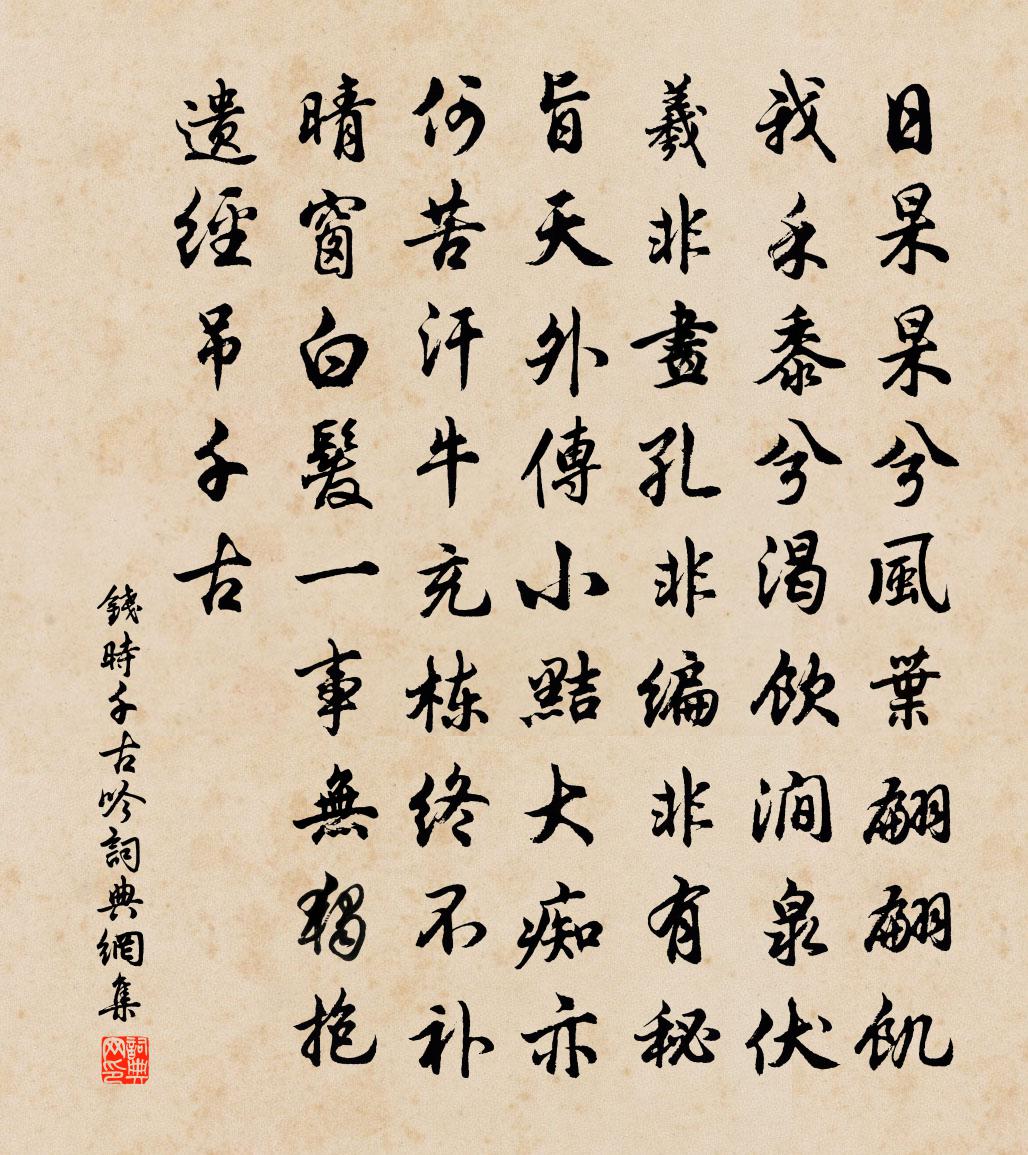 日杲杲兮風葉翩翩飢
我禾黍兮渴飲澗泉伏
羲非畫孔非編非有秘
旨天外傳小黠大痴亦
何苦汗牛充栋终不补
晴窗白髮一事無獨抱
遺經吊千古
錢時千古吟詞典網集
詞典网印